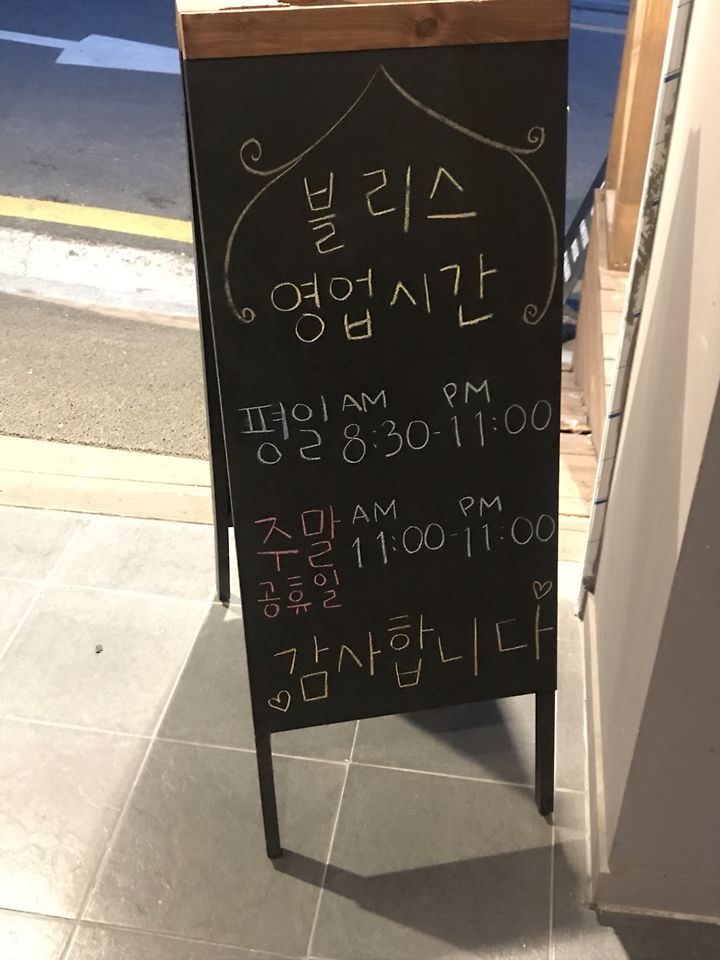 블리스
영업시간
평일 AM 8:30 - PM 11:00
주말 AM 11:00 - PM 11:00
공휴일
감사합니다